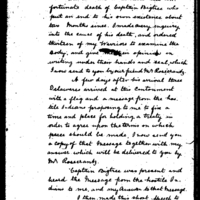 fortunate death of Captain Bigtree who
put an end to his own existence about
two Months since. I made every inquiry
into the cause of his death, and ordered
thirteen of my Warriors to examine the
body, and give their opinions in
writing under their hands and seal, which
I now send to you by our friend Mr Rosecrantz.
A few days after his arrival three
Delawares arrived at this Cantonment
with a flag and a message from the hos-
tile Indians proposing to me to fix a
time and place for holding a Treaty in
order to agree upon the terms on which
peace should be made, I now send you
a copy of that Message together with my
answer which will be delivered to you by
Mr Rosecrantz.
Captain Bigtree was present and
heard the Message from the hostile In-
dians to me, and my Answer to that Message.
I then made this short speech to